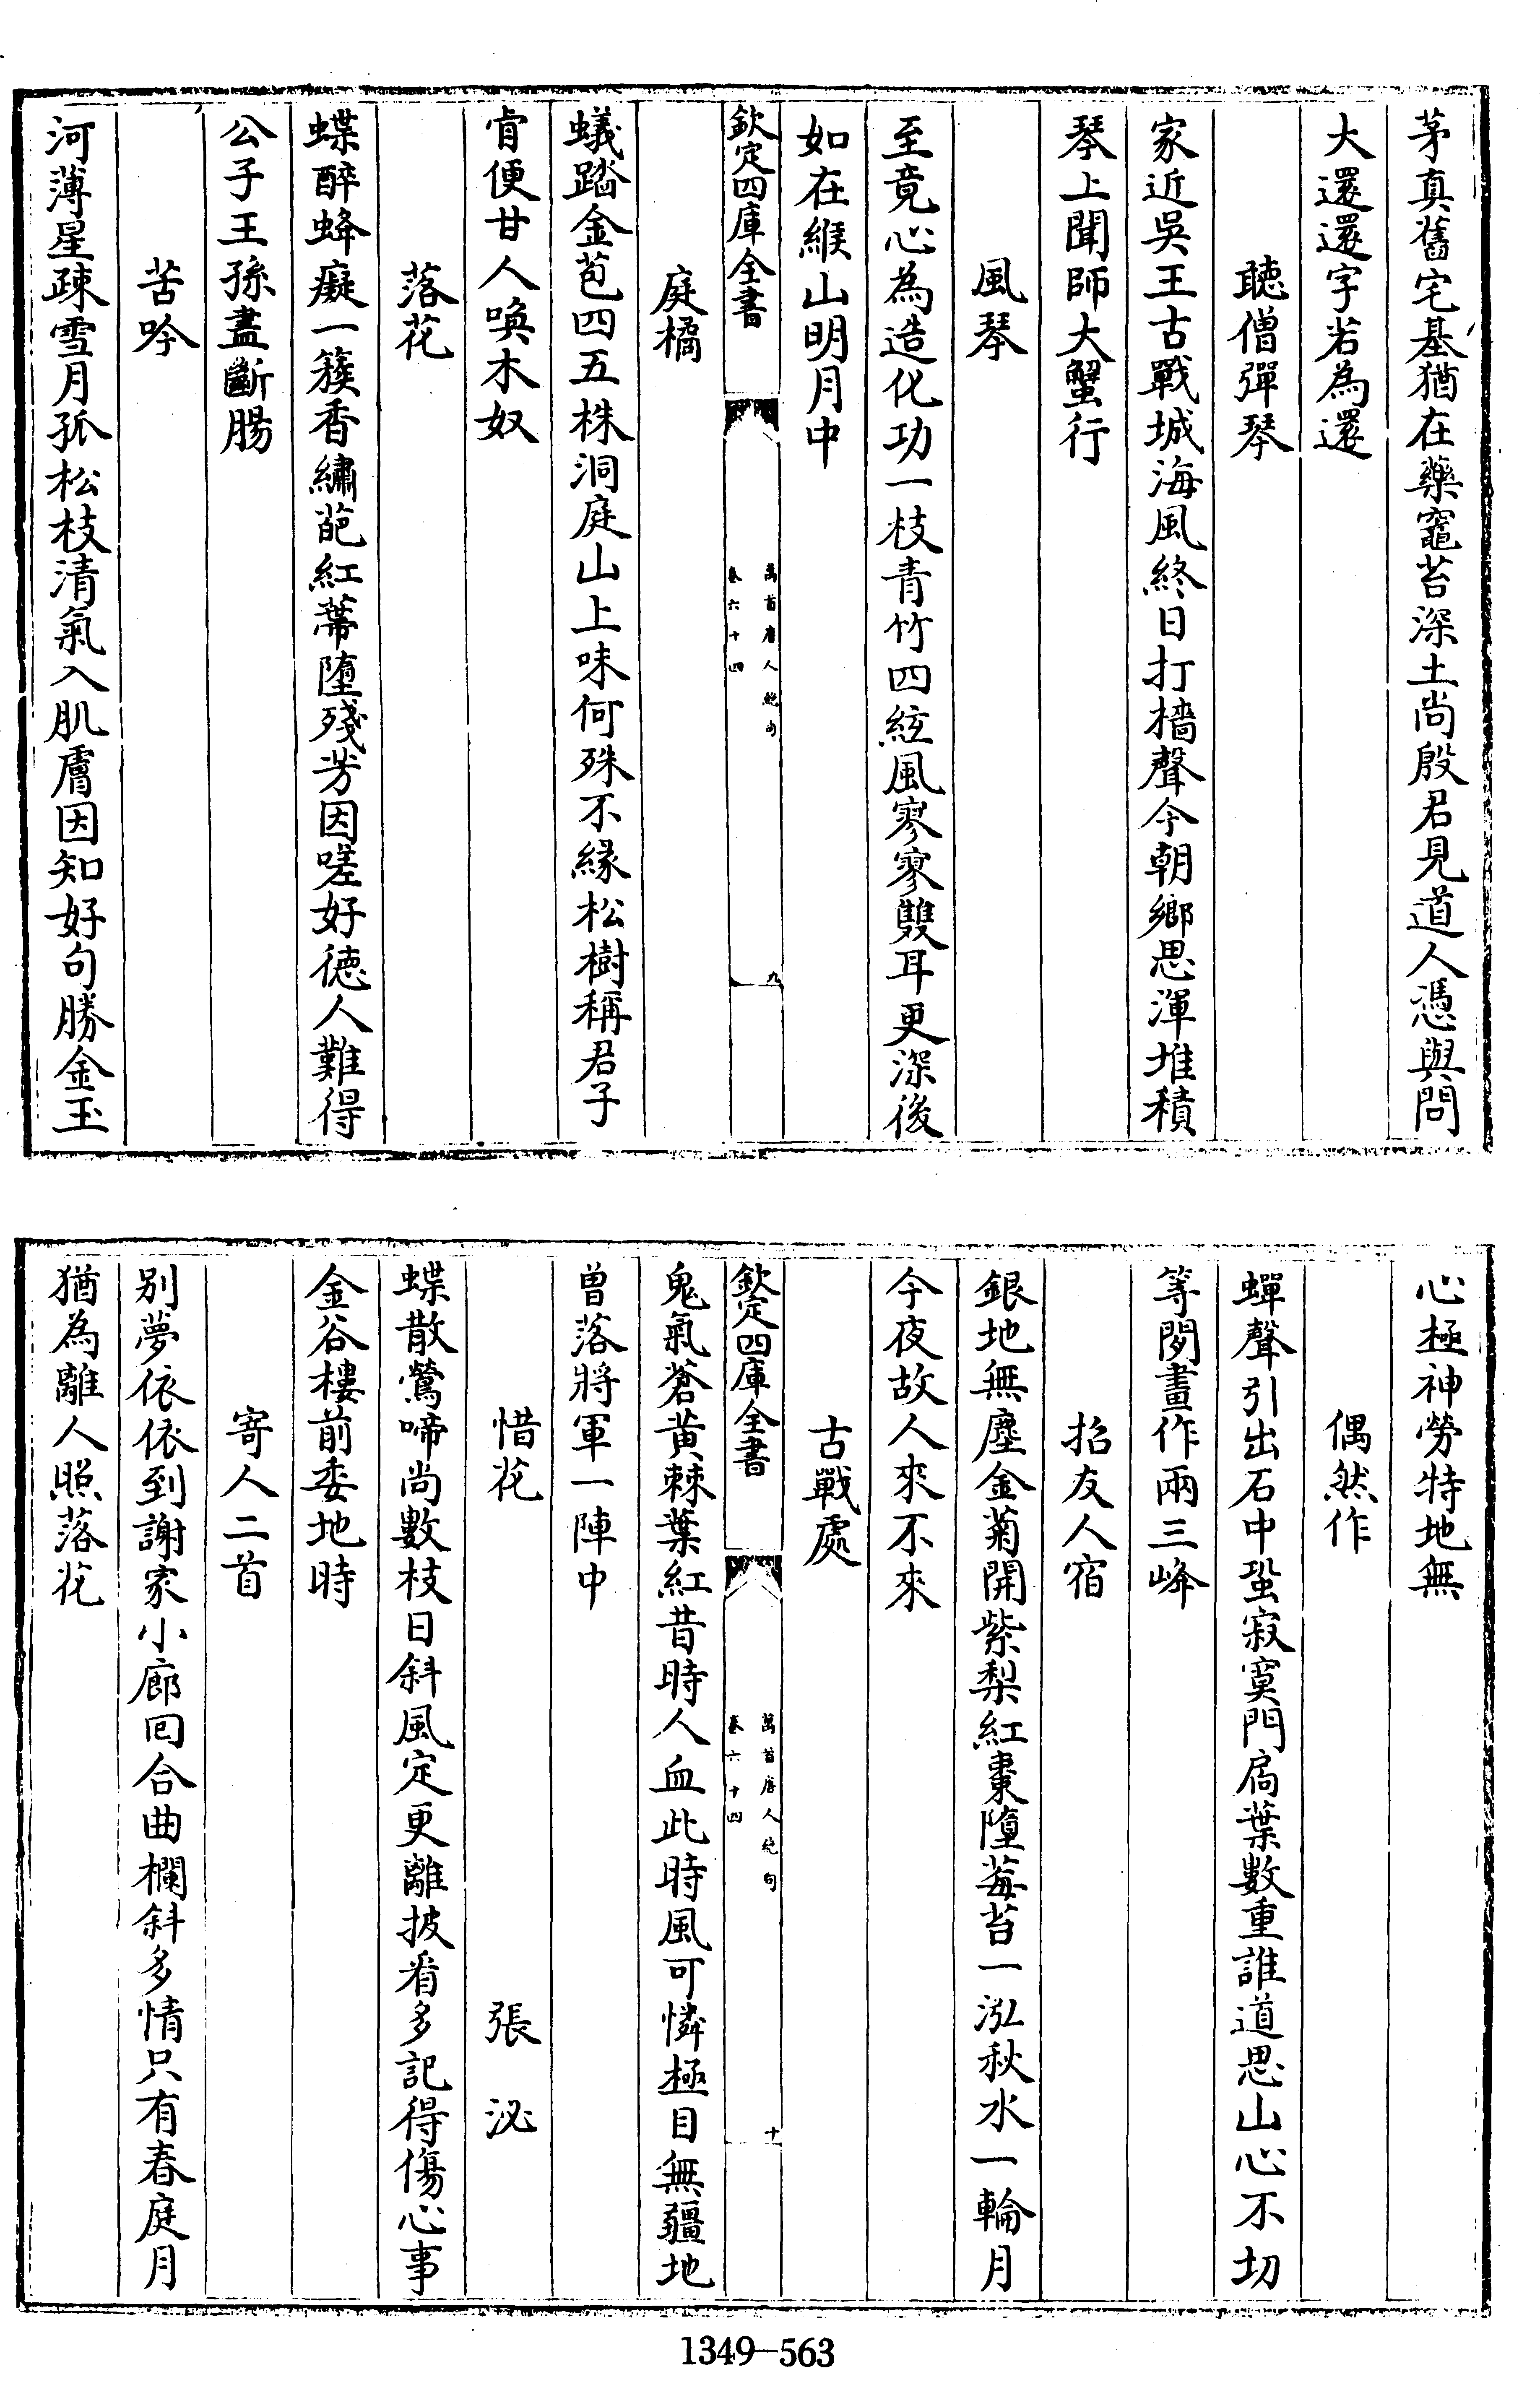 茅真舊宅基猶在藥竈苔深土尚殷君見道人憑與問
大還還字若為還
聽僧彈琴
家近吳王古戰城海風終日打檣聲今朝鄉思渾堆積
琴上聞師大蟹行
風琴
至竟心為造化功一枝青竹四絃風寥寥雙耳更深後
如在緱山明月中
欽定四庫全書
萬首唐人絶句
卷六十四
九
庭橘
蟻踏金苞四五株洞庭山上味何殊不緣松樹稱君子
肯便甘人喚木奴
落花
蝶醉蜂癡一簇香繡葩紅蔕墮殘芳因嗟好德人難得
公子王孫盡斷腸
苦吟
河薄星疎雪月孤松枝清氣入肌膚因知好句勝金玉
心極神勞特地無
偶然作
蟬聲引出石中蛩寂寞門扃葉數重誰道思山心不切
等閒畫作兩三峰
招友人宿
銀地無塵金菊開紫梨紅棗墮莓苔一泓秋水一輪月
今夜故人來不來
古戰處
欽定四庫全書
萬首唐人絶句
卷六十四
十
鬼氣蒼黄棘葉紅昔時人血此時風可憐極目無疆地
曽落將軍一陣中
惜花 張泌
蝶散鶯啼尚數枝日斜風定更離披看多記得傷心事
金谷樓前委地時
寄人二首
别夢依依到謝家小廊回合曲欄斜多情只有春庭月
猶為離人照落花
1349-563